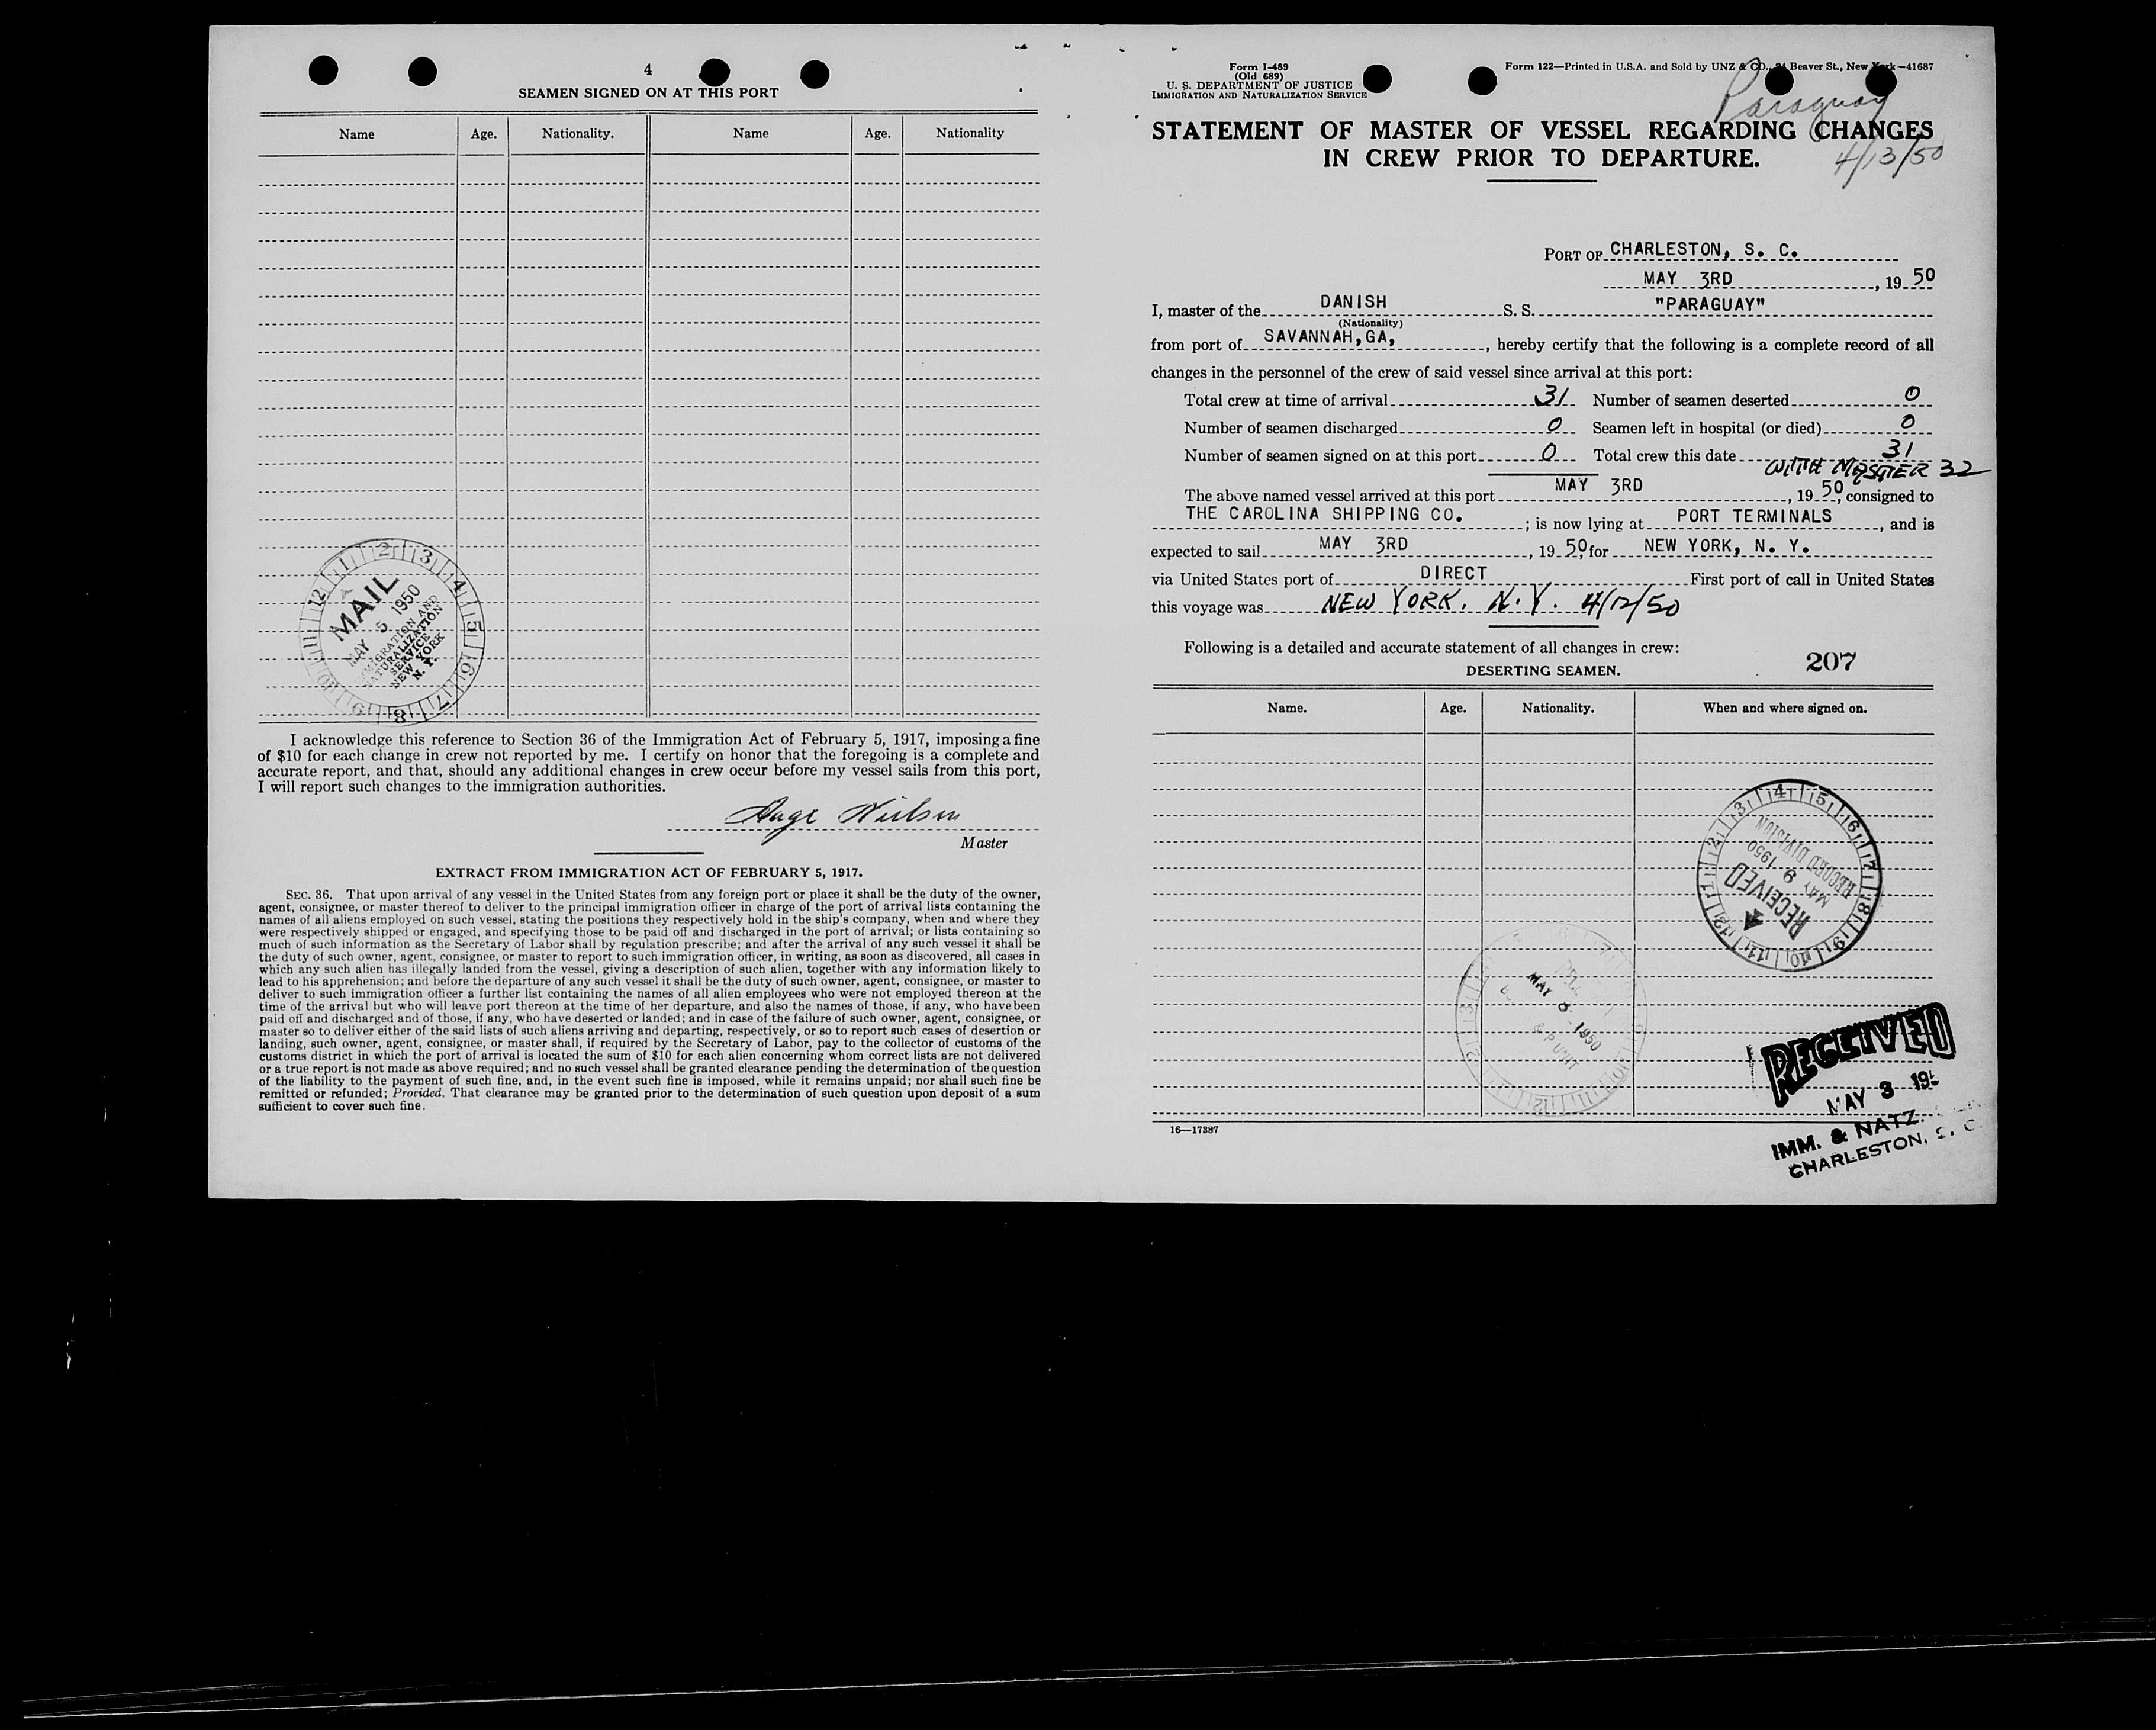 4
SEAMEN SIGNED ON AT THIS PORT
Name Age. Nationality. Name Age. Nationality
MAIL
MAY 5 1950
IMMIGRATION AND
NATURALIZATION
SERVICE
NEW YORK
N. Y.
I acknowledge this reference to Section 36 of the Immigration Act of February 5, 1917, imposing a fine
of $10 for each change in crew not reported by me. I certify on honor that the foregoing is a complete and
accurate report, and that, should any additional changes in crew occur before my vessel sails from this port,
I will report such changes to the immigration authorities.
Aage Nielsen
Master
EXTRACT FROM IMMIGRATION ACT OF FEBRUARY 5, 1917.
SEC. 36. That upon arrival of any vessel in the United States from any foreign port or place it shall be the duty of the owner,
agent, consignee, or master thereof to deliver to the principal immigration officer in charge of the port of arrival lists containing the
names of all aliens employed on such vessel, stating the positions they respectively hold in the ship's company, when and where they
were respectively shipped or engaged, and specifying those to be paid off and discharged in the port of arrival; or lists containing so
much of such information as the Secretary of Labor shall by regulation prescribe; and after the arrival of any such vessel it shall be
the duty of such owner, agent, consignee, or master to report to such immigration officer, in writing, as soon as discovered, all cases in
which any such alien has illegally landed from the vessel, giving a description of such alien, together with any information likely to
lead to his apprehension; and before the departure of any such vessel it shall be the duty of such owner, agent, consignee, or master to
deliver to such immigration officer a further list containing the names of all alien employees who were not employed thereon at the
time of the arrival but who will leave port thereon at the time of her departure, and also the names of those, if any, who have been
paid off and discharged and of those, if any, who have deserted or landed; and in case of the failure of such owner, agent, consignee, or
master so to deliver either of the said lists of such aliens arriving and departing, respectively, or so to report such cases of desertion or
landing, such owner, agent, consignee, or master shall, if required by the Secretary of Labor, pay to the collector of customs of the
customs district in which the port of arrival is located the sum of $10 for each alien concerning whom correct lists are not delivered
or a true report is not made as above required; and no such vessel shall be granted clearance pending the determination of the question
of the liability to the payment of such fine, and, in the event such fine is imposed, while it remains unpaid; nor shall such fine be
remitted or refunded; Provided, That clearance may be granted prior to the determination of such question upon deposit of a sum
sufficient to cover such fine.
Form I-489
(Old 689)
U. S. DEPARTMENT OF JUSTICE
IMMIGRATION AND NATURALIZATION SERVICE
Form 122—Printed in U.S.A. and Sold by UNZ & CO., 24 Beaver St., New York—41687
Paraguay
STATEMENT OF MASTER OF VESSEL REGARDING CHANGES
IN CREW PRIOR TO DEPARTURE.
4/13/50
PORT OF CHARLESTON, S. C.
MAY 3RD, 19 50
I, master of the DANISH S. S. "PARAGUAY"
(Nationality)
from port of SAVANNAH, GA, , hereby certify that the following is a complete record of all
changes in the personnel of the crew of said vessel since arrival at this port:
Total crew at time of arrival 31 Number of seamen deserted 0
Number of seamen discharged 0 Seamen left in hospital (or died) 0
Number of seamen signed on at this port 0 Total crew this date 31
WITH MASTER 32
The above named vessel arrived at this port MAY 3RD, 19 50, consigned to
THE CAROLINA SHIPPING CO. ; is now lying at PORT TERMINALS, and is
expected to sail MAY 3RD, 19 50 for NEW YORK, N. Y.
via United States port of DIRECT First port of call in United States
this voyage was NEW YORK, N.Y. 4/12/50
Following is a detailed and accurate statement of all changes in crew:
207
DESERTING SEAMEN.
Name. Age. Nationality. When and where signed on.
RECEIVED
MAY 9 1950
RECORD DIVISION
MAY 8 1950
UNIT
RECEIVED
MAY 3 195
IMM. & NATZ.
CHARLESTON, S. C.
16—17387